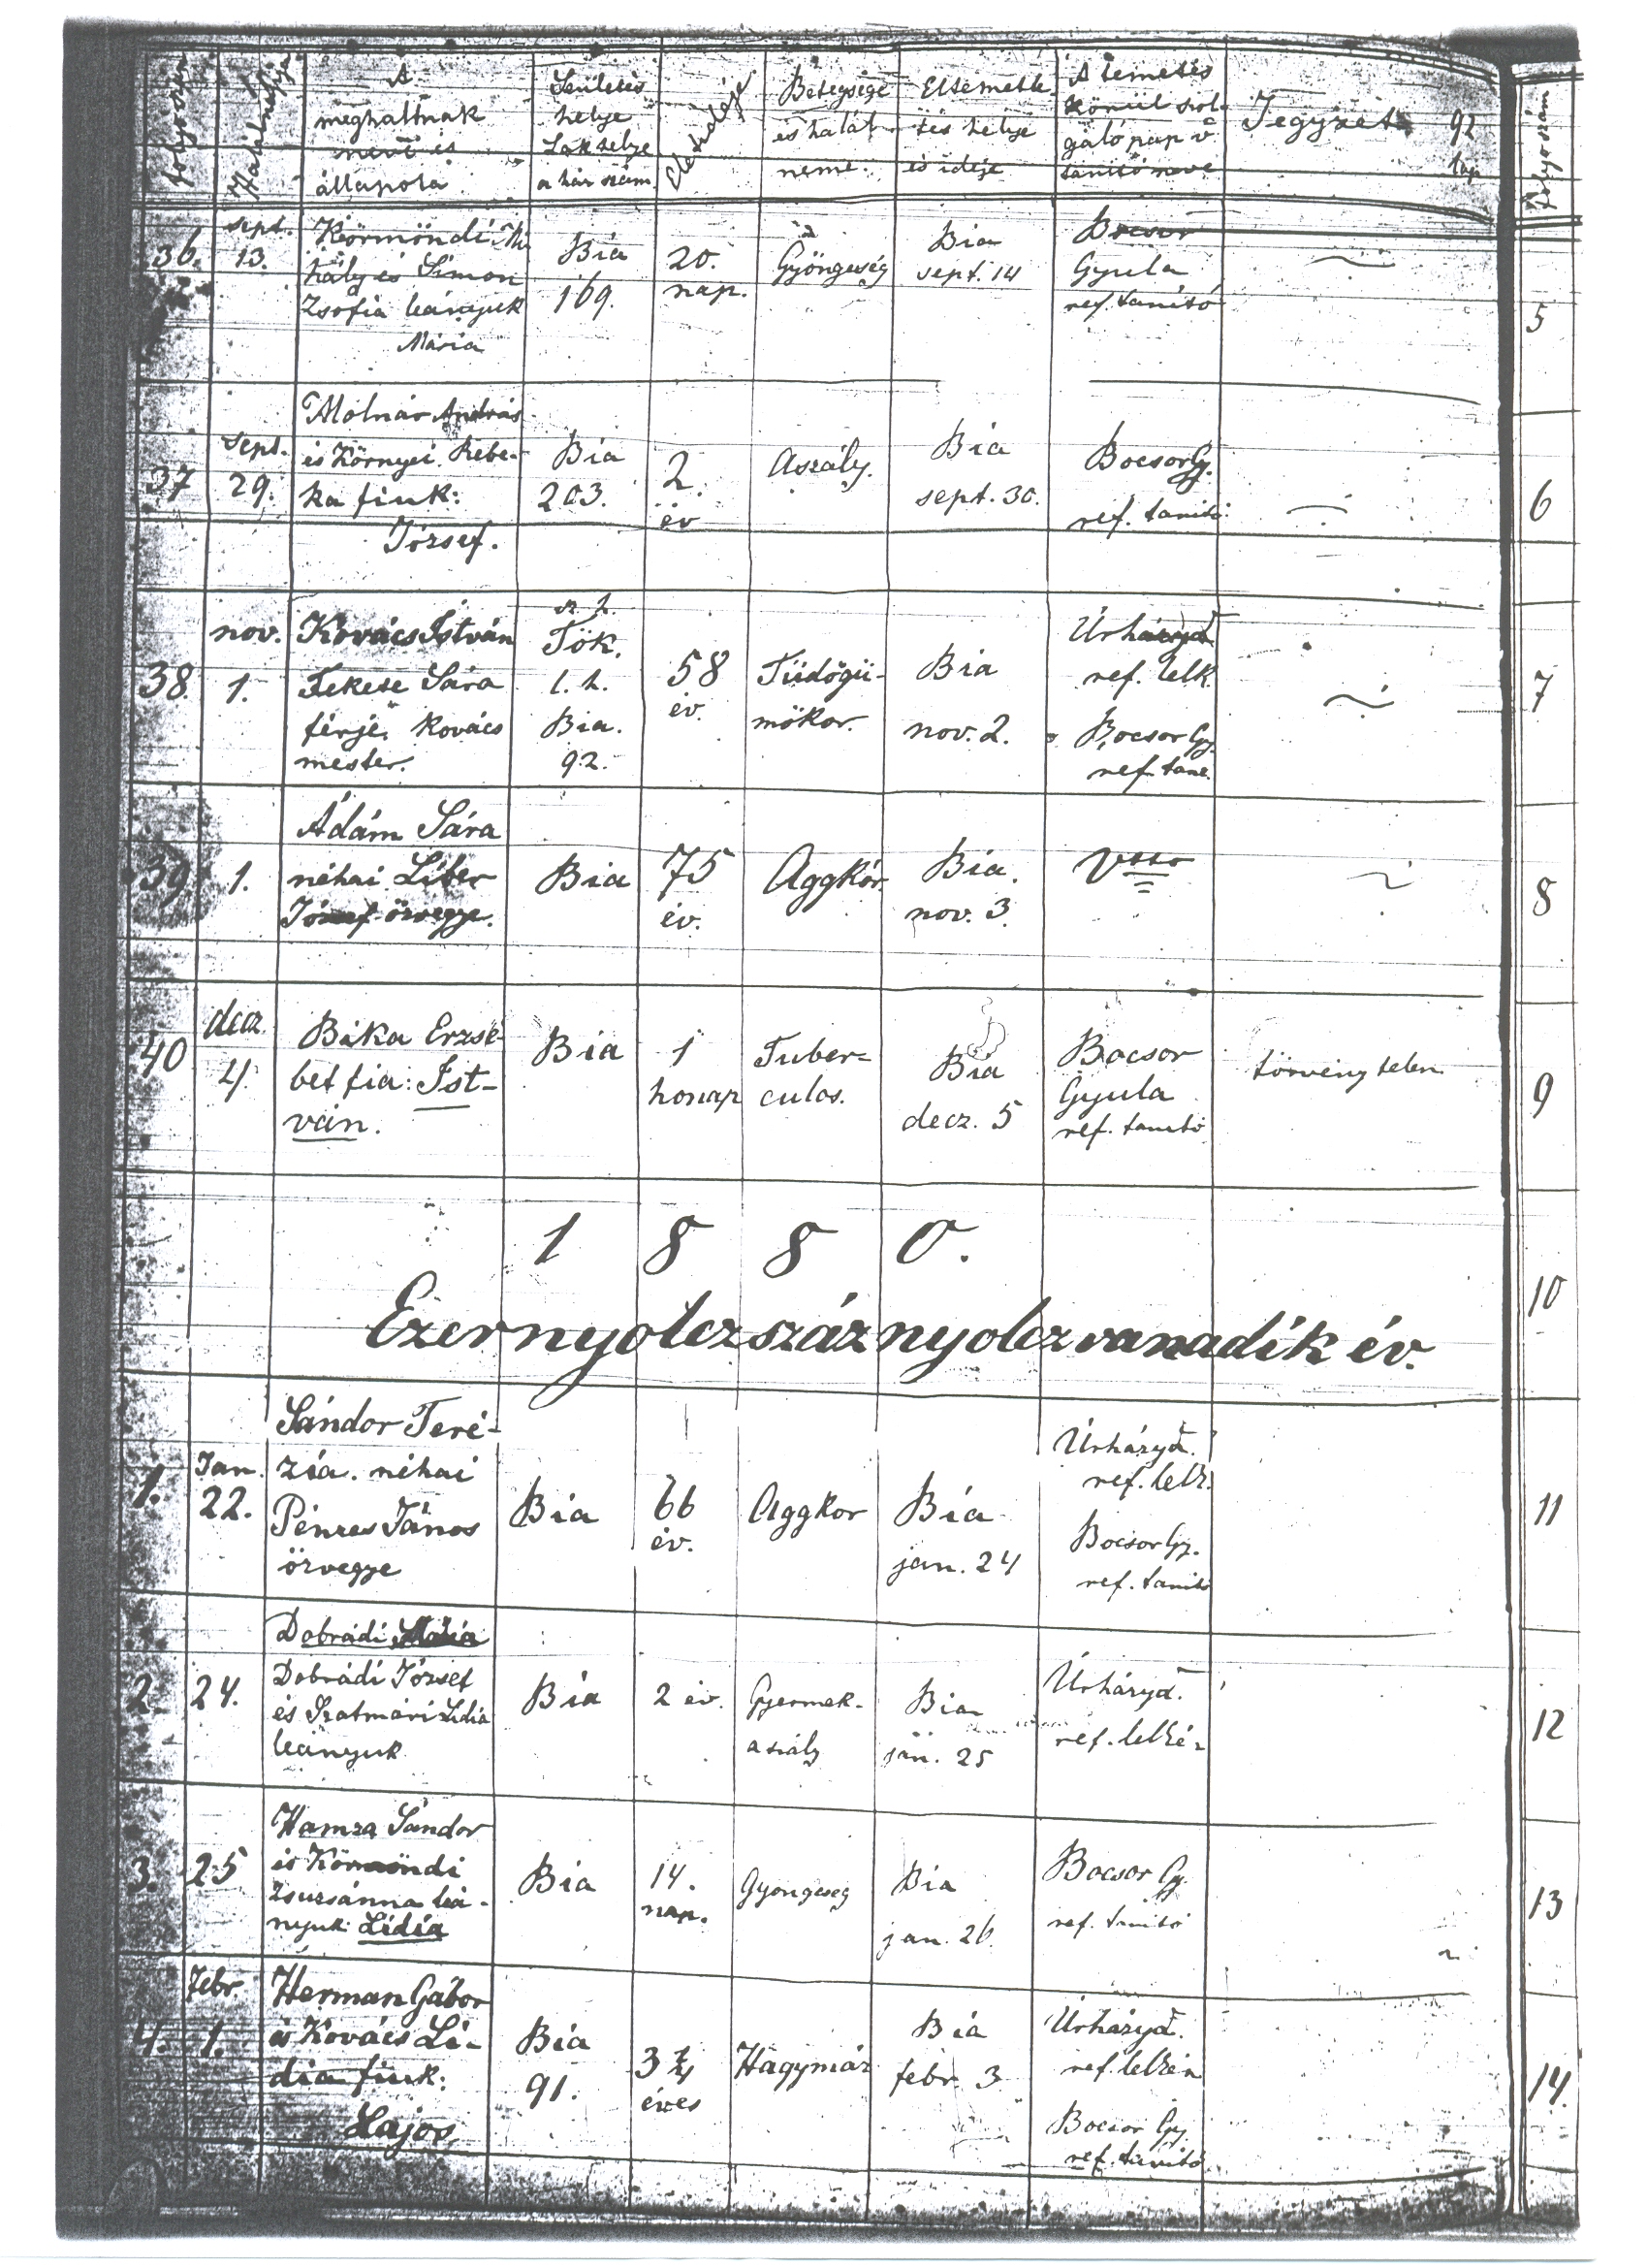 folyószám
Halál napja
A
meghaltnak
neve és
állapota
Születés
helye
Lakhelye
a ház szám
Életideje
Betegsége
és halál
neme
Eltemette-
tés helye
és ideje
A temetés
körül szol-
gáló pap v.
tanító neve
Jegyzet
92
lap
folyószám
36.
sept.
13.
Körmöndi Mi
hály és Simon
Zsófia leányuk
Mária
Bia
169.
20.
nap.
Gyöngeség
Bia
sept. 14
Bocsor
Gyula
ref. tanító
5
37
sept.
29.
Molnár András
és Környei Rebe-
ka fiuk:
József.
Bia
203.
2.
év
Aszály.
Bia
sept. 30.
Bocsor Gy.
ref. tanító
6
38.
nov.
1.
Kovács István
Fekete Sára
férje, kovács
mester.
sz. h.
Tök.
l. h.
Bia.
92.
58
év.
Tüdőgü-
mőkor.
Bia
nov. 2.
Úrházy
ref. lelk.
Bocsor Gy.
ref. tané.
7
39
1.
Ádám Sára
néhai Liber
József özvegye.
Bia
75
év.
Aggkór
Bia.
nov. 3.
8
40
decz.
4.
Bika Erzsé-
bet fia: Ist-
ván.
Bia
1
honap
Tuber-
culos.
Bia
decz. 5
Bocsor
Gyula
ref. tanító
törvénytelen
9
1 8 8 0.
10
Ezernyolczszáznyolczvanadik év.
1.
Jan.
22.
Sándor Teré-
zia. néhai
Pénzes János
özvegye
Bia
66
év.
Aggkor
Bia
jan. 24
Úrházy
ref. lelk.
Bocsor Gy.
ref. tanító
11
2.
24.
Dobrádi Mária
Dobrádi József
és Szatmári Lidia
leányuk
Bia
2 év.
Gyermek-
aszály
Bia
jan. 25
Úrházy
ref. lelkész
12
3.
25
Hamza Sándor
és Körmöndi
Zsuzsánna leá-
nyuk: Lidia
Bia
14.
nap.
Gyongeseg
Bia
jan. 26.
Bocsor Gy.
ref. tanító
13
4.
febr.
1.
Herman Gábor
és Kovács Li-
dia fiuk:
Lajos
Bia
91.
3 ¾
éves
Hagymáz
Bia
febr. 3
Úrházy
ref. lelkész
Bocsor Gy.
ref. tanító
14.